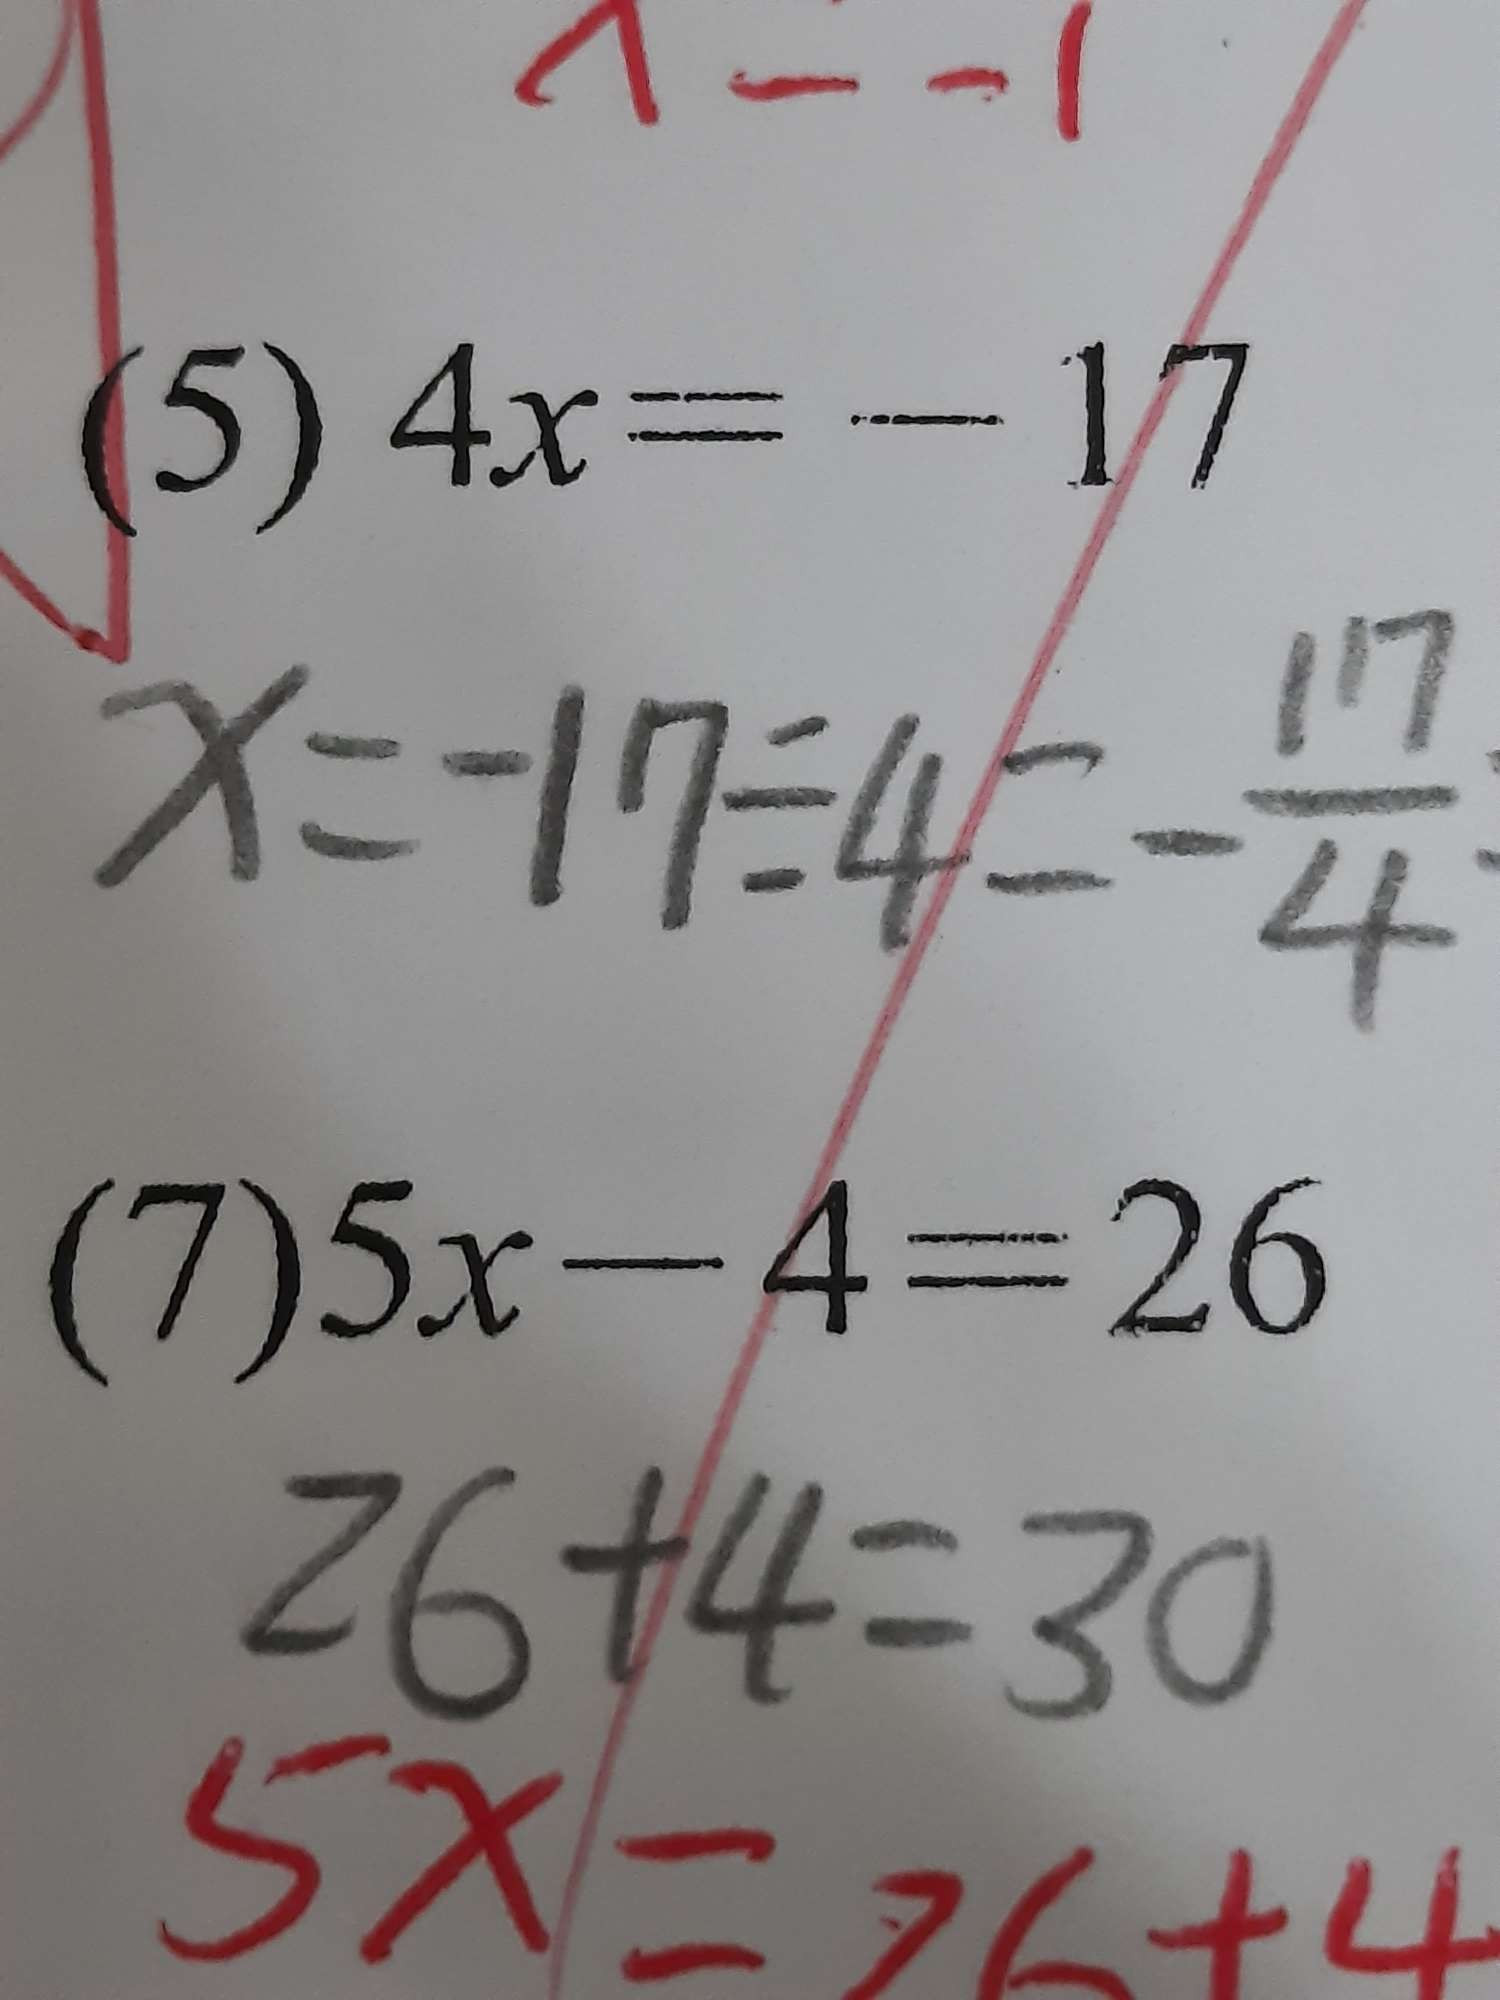 x = -1
(5) 4x = -17
x = -17 ÷ 4 = -17/4 =
(7) 5x - 4 = 26
26 + 4 = 30
5x = 26 + 4